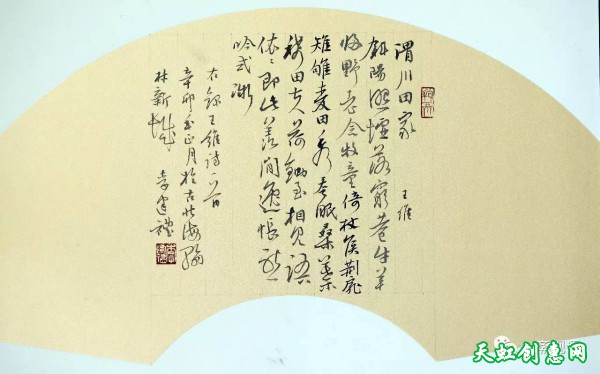 渭川田家 王維
斜陽照墟落窮巷牛羊
归野老念牧童倚杖候荆扉
雉雊麦田秀蚕眠桑葉
稀田夫荷鋤至相见語
依〻即此羡閒逸悵然
吟式微
右錄王維詩一首
辛卯年正月於古
林新
天虹创意网